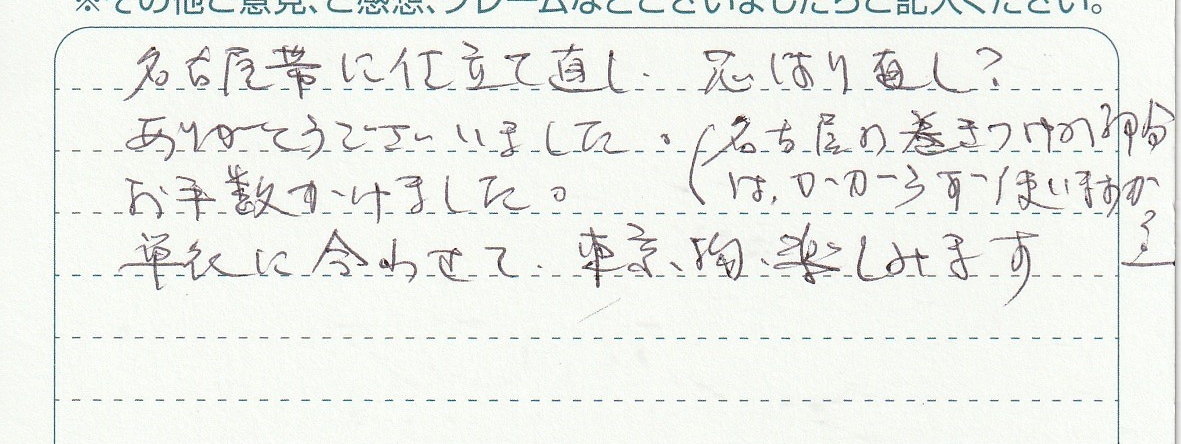 ※その他ご意見、ご感想、クレームなどございましたらご記入ください。
名古屋帯に仕立て直し、芯はり直し?
ありがとうございました。(名古屋の巻きつけの部分
お手数かけました。は、かからず使いますから
単衣に合わせて、東京、楽しみます